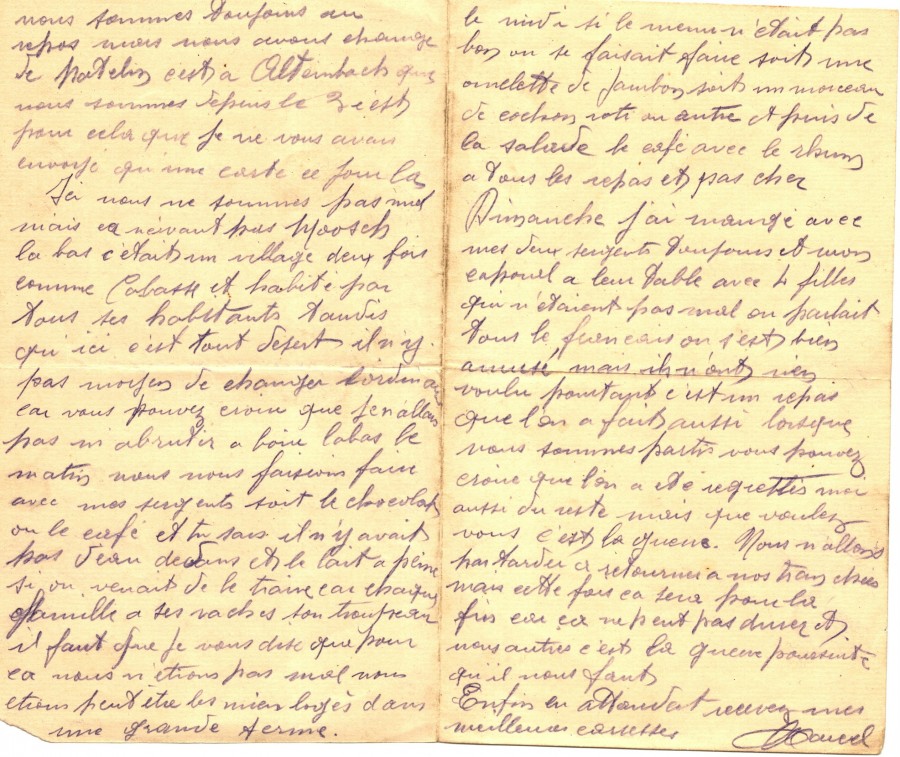 nous sommes toujours au
repos mais nous avons change
de patelin c'est a Altenbach que
nous sommes depuis le 3 c'est
pour cela que je ne vous avais
envoyé qu'une carte ce jour la
Ici nous ne sommes pas mal
mais ca n'evant pas Moosch
la bas c'etait un village deux fois
comme Cabasse et habité par
tous ses habitants tandis
qu'ici c'est tout desert il n'y
pas moyen de changer l'ordinaire
car vous pouvez croire que j'en allais
pas m'abrutir a boire labas le
matin nous nous faisions faire
avec mes sergents soit le chocolat
ou le café et tu sais il n'y avait
pas d'eau dedans et le lait a peine
si on venait de le traire car chaque
famille a ses vaches son troupeau
il faut que je vous dise que pour
ca nous n'etions pas mal nous
etions peut etre les mieux logés dans
une grande ferme.
le midi si le menu n'était pas
bon on se faisait faire soit une
omelette de jambon soit un morceau
de cochon roti ou autre et puis de
la salade le café avec le rhum
a tous les repas et pas cher
Dimanche j'ai mangé avec
mes deux sergents toujours et mon
caporal a leur table avec 4 filles
qui n'étaient pas mal on parlait
tous le francais on s'est bien
amusé mais ils n'ont rien
voulu pourtant c'est un repas
que l'on a fait aussi lorsque
nous sommes partis vous pouvez
croire que l'on a été regrettés moi
aussi du reste mais que voulez
vous c'est la guerre. Nous n'allons
pas tarder a retourner a nos tranchées
mais cette fois ca sera pour la
fin car ca ne peut pas durer et
nous autres c'est la guerre poursuite
qu'il nous faut
Enfin en attendant recevez mes
meilleures caresses Marcel